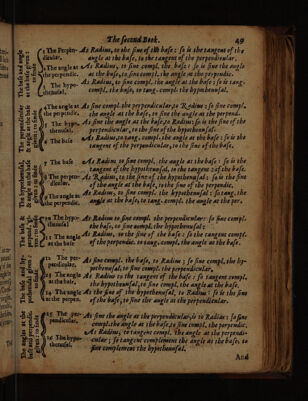 The second Book. 49
The base and angle at the base given to finde
1 The Perpendicular,
As Radius, to the sine of the base: so is the tangent of the
angle at the base, to the tangent of the perpendicular.
2 The angle at the perpendic.
As Radius, to sine compl. the base: so is sine the angle
at the base, to sine compl. the angle at the perpendic.
3 The hypothenusal.
As Radius, to sine compl. the angle at the base: so is tang.
compl. the base, to tang. compl. the hypothenusal.
The perpendicular & angle at the base given to finde
4 The angle at the perpendic.
As sine compl. the perpendicular, to Radius: so sine compl.
the angle at the base, to sine the angle at the perpend.
5 The hypothenusal.
As sine the angle at the base, to Radius: so is the sine of the
perpendicular, to the sine of the hypothenusal.
6 The base
As Radius, to tang. compl. the angle at the base: so is the
tangent of the perpendicular, to the sine of the base.
The hypothenusal, & angle at the base given to finde
7 The base
As Radius, to sine compl. the angle at the base: so is the
tangent of the hypothenusal, to the tangent of the base.
8 The perpendicular.
As Radius, to the sine of the hypothenusal: so is the sine
of the angle at the base, to the sine of the perpendic.
9 The angle at the perpendic.
As Radius, to sine compl. the hypothenusal: so tang. the
angle at the base, to tang. compl. the angle at the per.
The base & perpendicular given to finde
10 The hypothenusal.
As Radius to sine compl. the perpendicular: so sine compl.
the base, to sine compl. the hypothenusal:
11 The angle at the base
As Radius, to the sine of the base: so the tangent compl.
of the perpendic. to tang. compl. the angle at the base.
The base and hypothenusal given to finde
12 The perpendicular.
As sine compl. the base, to Radius: so sine compl. the hypothenusal,
to sine compl. the perpendicular.
13 The angle at the base.
As Radius to the tangent of the base: so tangent compl.
the hypothenusal, to sine compl. the angle at the base.
14 The angle at the perpen.
As the sine of the hypothenusal, to Radius: so is the sine
of the base, to sine the angle at the perpendicular.
The angles at the base and perpendic. given to finde
15 The perpendicular.
As sine the angle at the perpendicular, is to Radius: so sine
compl. the angle at the base, to sine compl. the perpendic.
16 The hypothenusal.
As Radius, to tangent compl. the angle at the perpendicular;
so tangent complement the angle at the base, to
sine complement the hypothenusal.
And